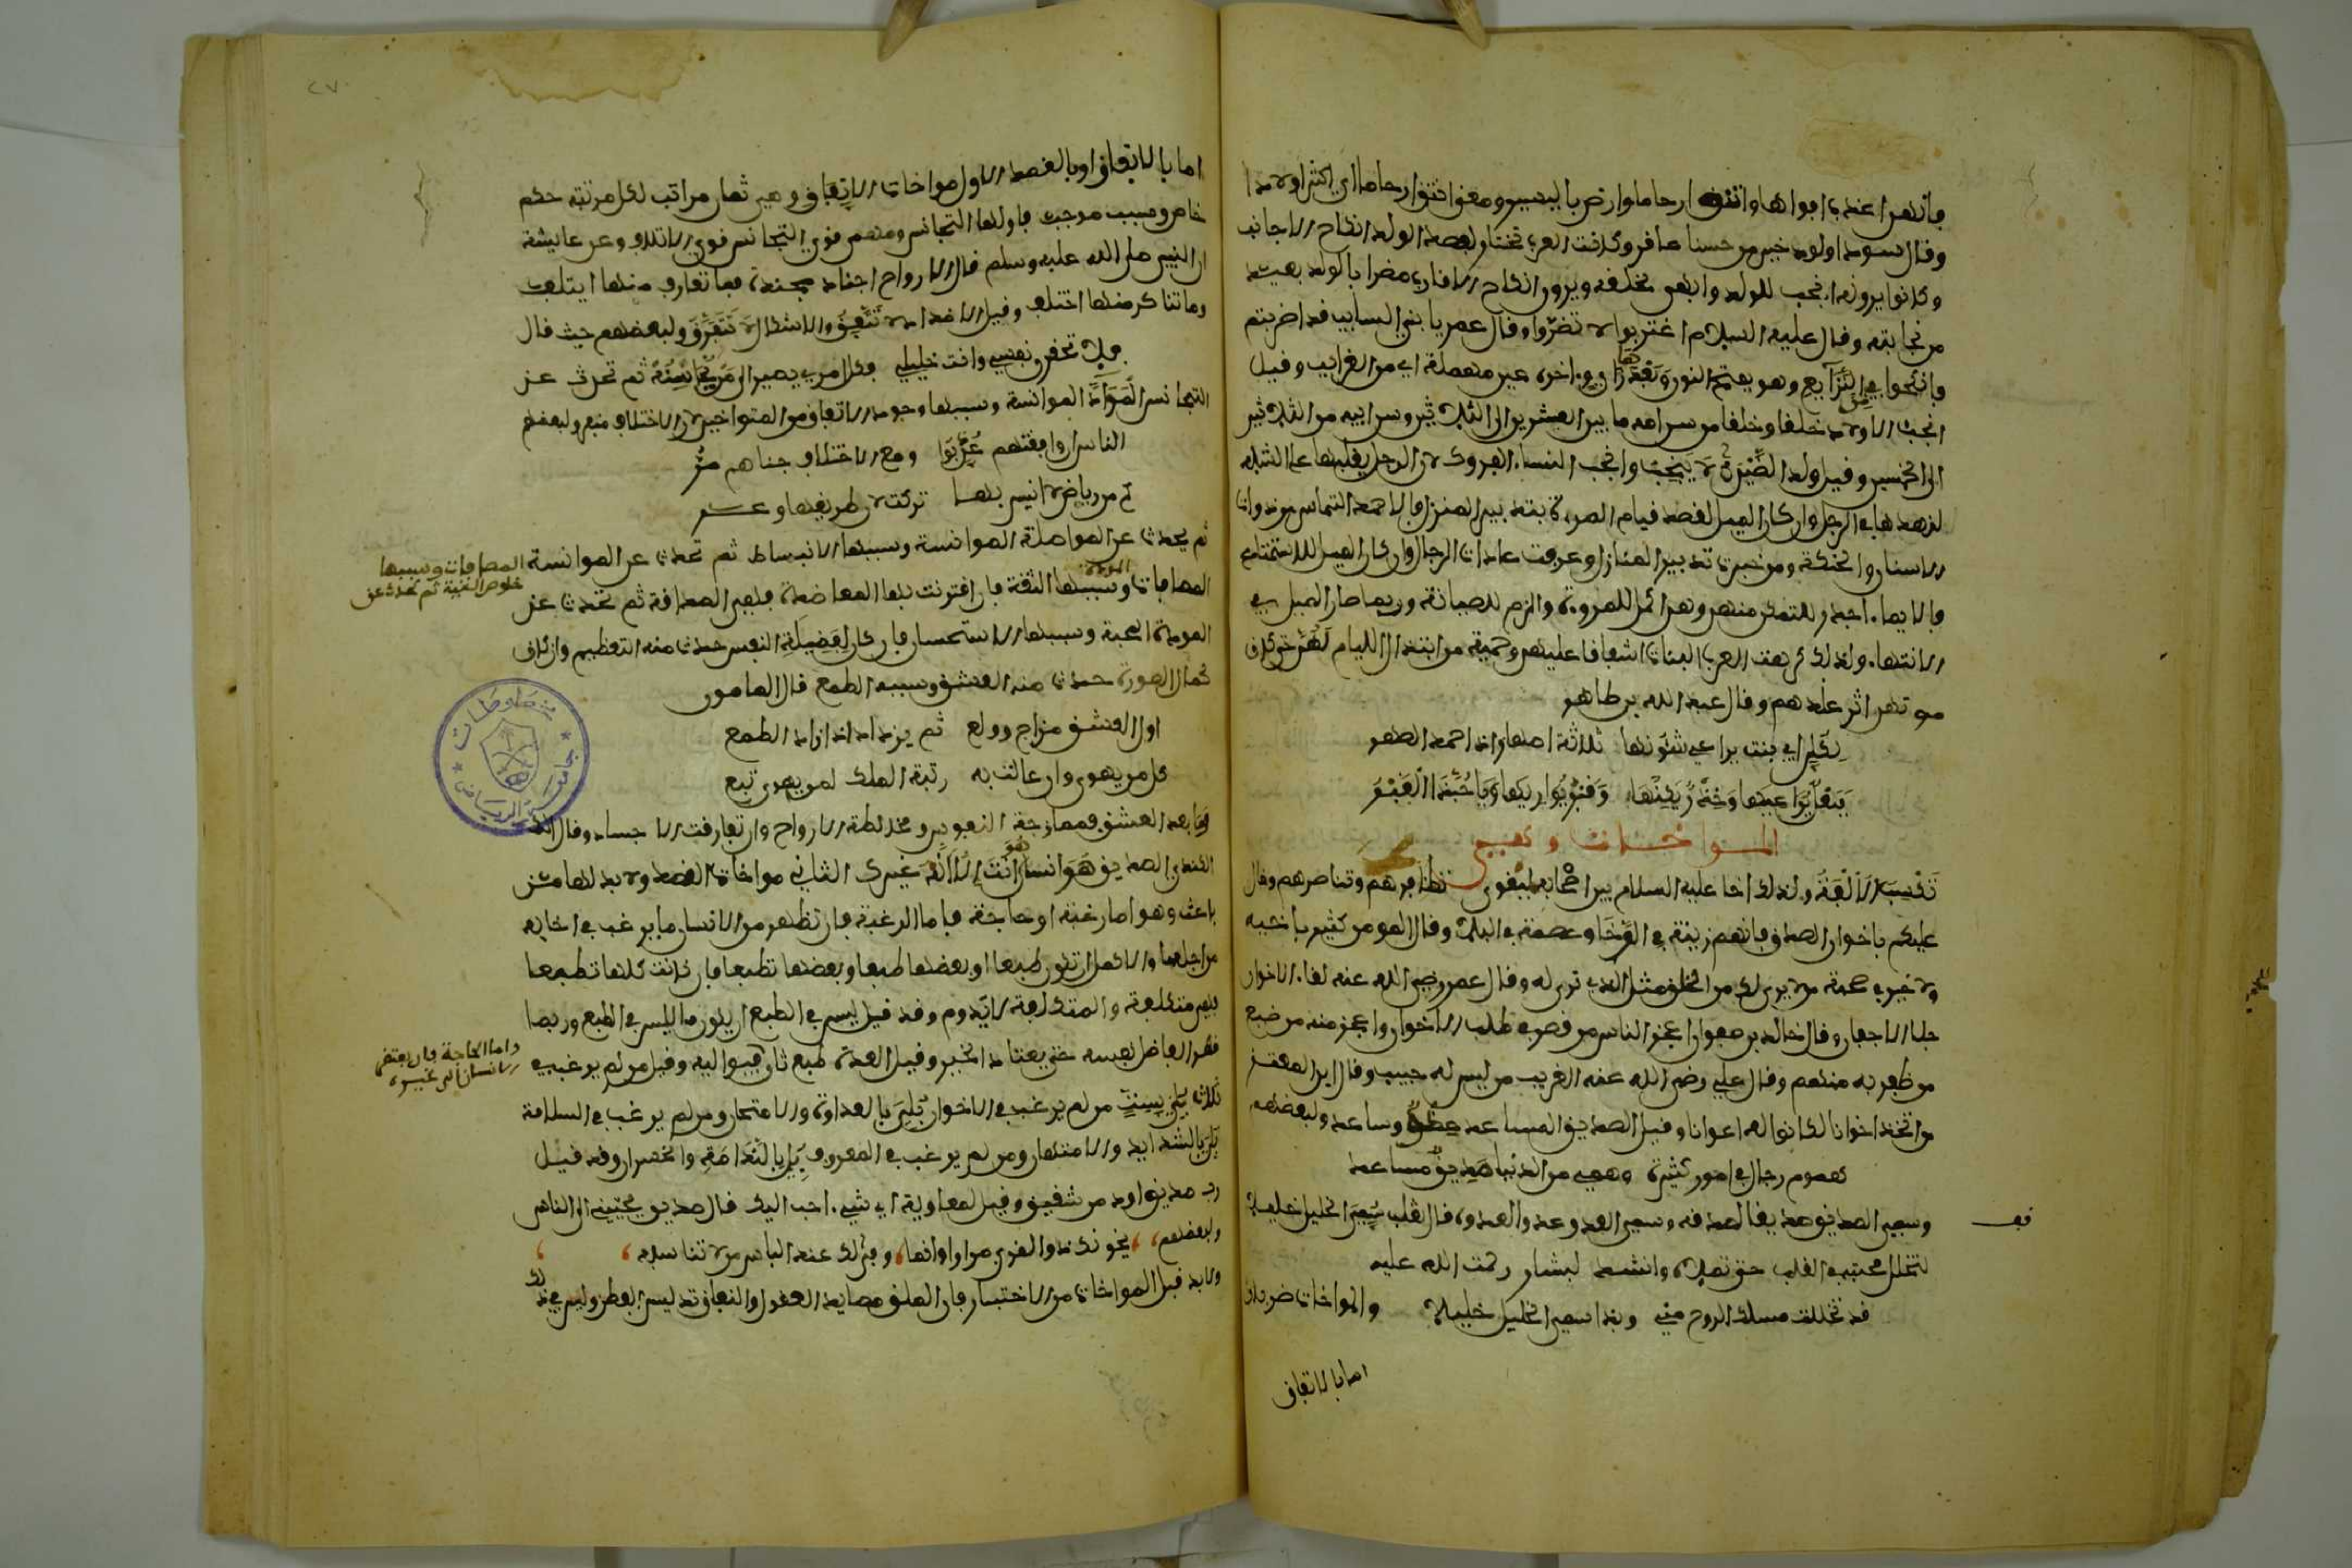 فإنهن اعذب افواها وانتق ارحاما وارضى باليسير ومعنى انتق ارحاما اي اكثر اولادا
وقال سوداء ولود خير من حسناء عاقر وكانت العرب تختار لهذا الولد انكاح الاجانب
وكانوا يرونه انجب للولد وابهى لخلقه ويرون انكاح الاقارب مضرا بالولد بعيد
من نجابته وقال عليه السلام اغتربوا لا تضووا وقال عمر يا بني السايب قد اضويتم
فانكحوا في النزايع وهو بفتح النون وبعدها زاي واخره عين مهملة اي من الغرايب وقيل
انجب الاولاد خلقا وخلقا من سن امه ما بين العشرين الى الثلاثين وسن ابيه من الثلاثين
الى الخمسين وقيل ولد الغيرى لا ينجب وانجب النساء الفروك لان الرجل يغلبها على الشبه
لزهدها في الرجل وان كان الميل لقصد قيام المرءة بتدبير المنزل فالاحمد التماس ذوات
الاسنان والحنكة ومن خبرت تدبير المنازل وعرفت عادات الرجال وان كان الميل للاستمتاع
فالايماء اجدر للتمكن منهن وهو اكمل للمروة والزم للصيانة وربما صار الميل في
الانتهاء ولذلك كرهت العرب البنات اشفاقا عليهن وحمية من ابتذال الليام لهن حتى كان
موتهن اثر عندهم وقال عبد الله بن طاهر
لكل ابي بنت يراعي شئونها ثلاثة اصهار اذا احمد الصهر
فبعل يراعيها وخدر يكنها وقبر يواريها وخيرها القبر
المواخات وهي
تكسب الالفة ولذلك اخا عليه السلام بين اصحابه ليقوى تظافرهم وتناصرهم وقال
عليكم باخوان الصدق فانهم زينة في الرخا وعصمة في البلاء وقال المرء كثير باخيه
ولا خير في صحبة من لا يرى لك من الحق مثل الذي ترى له وقال عمر رضي الله عنه لقاء الاخوان
جلاء الاحزان وقال خالد بن صفوان اعجز الناس من قصر في طلب الاخوان واعجز منه من ضيع
من ظفر به منهم وقال علي رضي الله عنه الغريب من ليس له حبيب وقال ابن المعتز
من اتخذ اخوانا كانوا له اعوانا وقيل الصديق المساعد عضد وساعد ولبعضهم
هموم رجال في امور كثيرة وهمي من الدنيا صديق مساعد
وسمي الصديق صديقا لصدقه وسمي العدو عدوا لعدوه قال ثعلب سمي الخليل خليلا
قف
لتخلل محبته القلب حتى تملاه وانشد لبشار رحمت الله عليه
قد تخللت مسلك الروح مني وبذا سمي الخليل خليلا والمواخات ضربان
اما بالاتفاق
٢٧
اما بالاتفاق او بالقصد الاول مواخات الاتفاق وهي ثمان مراتب لكل مرتبة حكم
خاص وسبب موجب فاولها التجانس ومنهم قوي التجانس قوي الائتلاف وعن عايشة
ان النبي صلى الله عليه وسلم قال الارواح اجناد مجندة فما تعارف منها ايتلف
وما تناكر منها اختلف وقيل الاضداد لا تتفق والاشكال لا تتفرق ولبعضهم حيث قال
فلا تحقر نفسي وانت خليلي فكل امرئ يصبو الى من يجانسه ثم تحدث عن
التجانس المؤانسة وسببها وجود الاتفاق من المتواخين لان الاختلاف منفر ولبعضهم
الناس ان وافقتهم عذبوا ومع الاختلاف جناهم مر
كم من رياض لا انيس بها تركت لان طريقها وعر
ثم يحدث عن المواصلة الموانسة وسببها الانبساط ثم تحدث عن الموانسة
المصافات وسببها خلوص النية ثم تحدث عن
المصافات المودة وسببها الثقة فان اقترنت بها المعاضدة فهي الصداقة ثم تحدث عن
المودة المحبة وسببها الاستحسان فان كان لفضيلة النفس حدث منه التعظيم وان كان
كمال الصورة حدث منه العشق وسببه الطمع قال المامون
اول العشق مزاح وولع ثم يزداد اذا زاد الطمع
كل من يهوى وان عالت به رتبة الملك لمن يهوى تبع
وما بعد العشق فممازجة النفوس ومخالطة الارواح وان تفارقت الاجساد وقال
الكندي الصديق هو انسان هو انت الا انه غيرك الثاني مواخات القصد ولابد لها من
باعث وهو اما رغبة او حاجة فاما الرغبة فان تظهر من الانسان ما يرغب في اخايه
من اجلها والاكمل ان تكون طبعا او بعضها طبعا وبعضها تطبعا فان كانت كلها تطبعا
فهي متكلفة والمتكلفة لا تدوم وقد قيل ليس في الطبع ان يكون ما ليس في الطبع وربما
قهر الفاضل نفسه حتى يعتاد الخير وقيل العادة طبع ثان فيبوا اليه وقيل من لم يرغب في
واما الحاجة فان يفتقر الانسان الى غيره
ثلاث بلي بست من لم يرغب في الاخوان بلي بالعداوة والامتحان ومن لم يرغب في السلامة
بلي بالشدايد والامتهان ومن لم يرغب في المعروف بلي بالندامة والخسران وقد قيل
رب صديق اود من شقيق وقيل لمعاوية اي شيء احب اليك قال صديق يحببني الى الناس
ولبعضهم يخونك ذو القربى مرارا وانما وفى لك عند الباس من لا تناسبه
ولابد قبل المواخات من الاختبار فان الملق مصايد العقول والنفاق تدليس الفطن وليس في ذلك
مخطوطات
جامعة الرياض